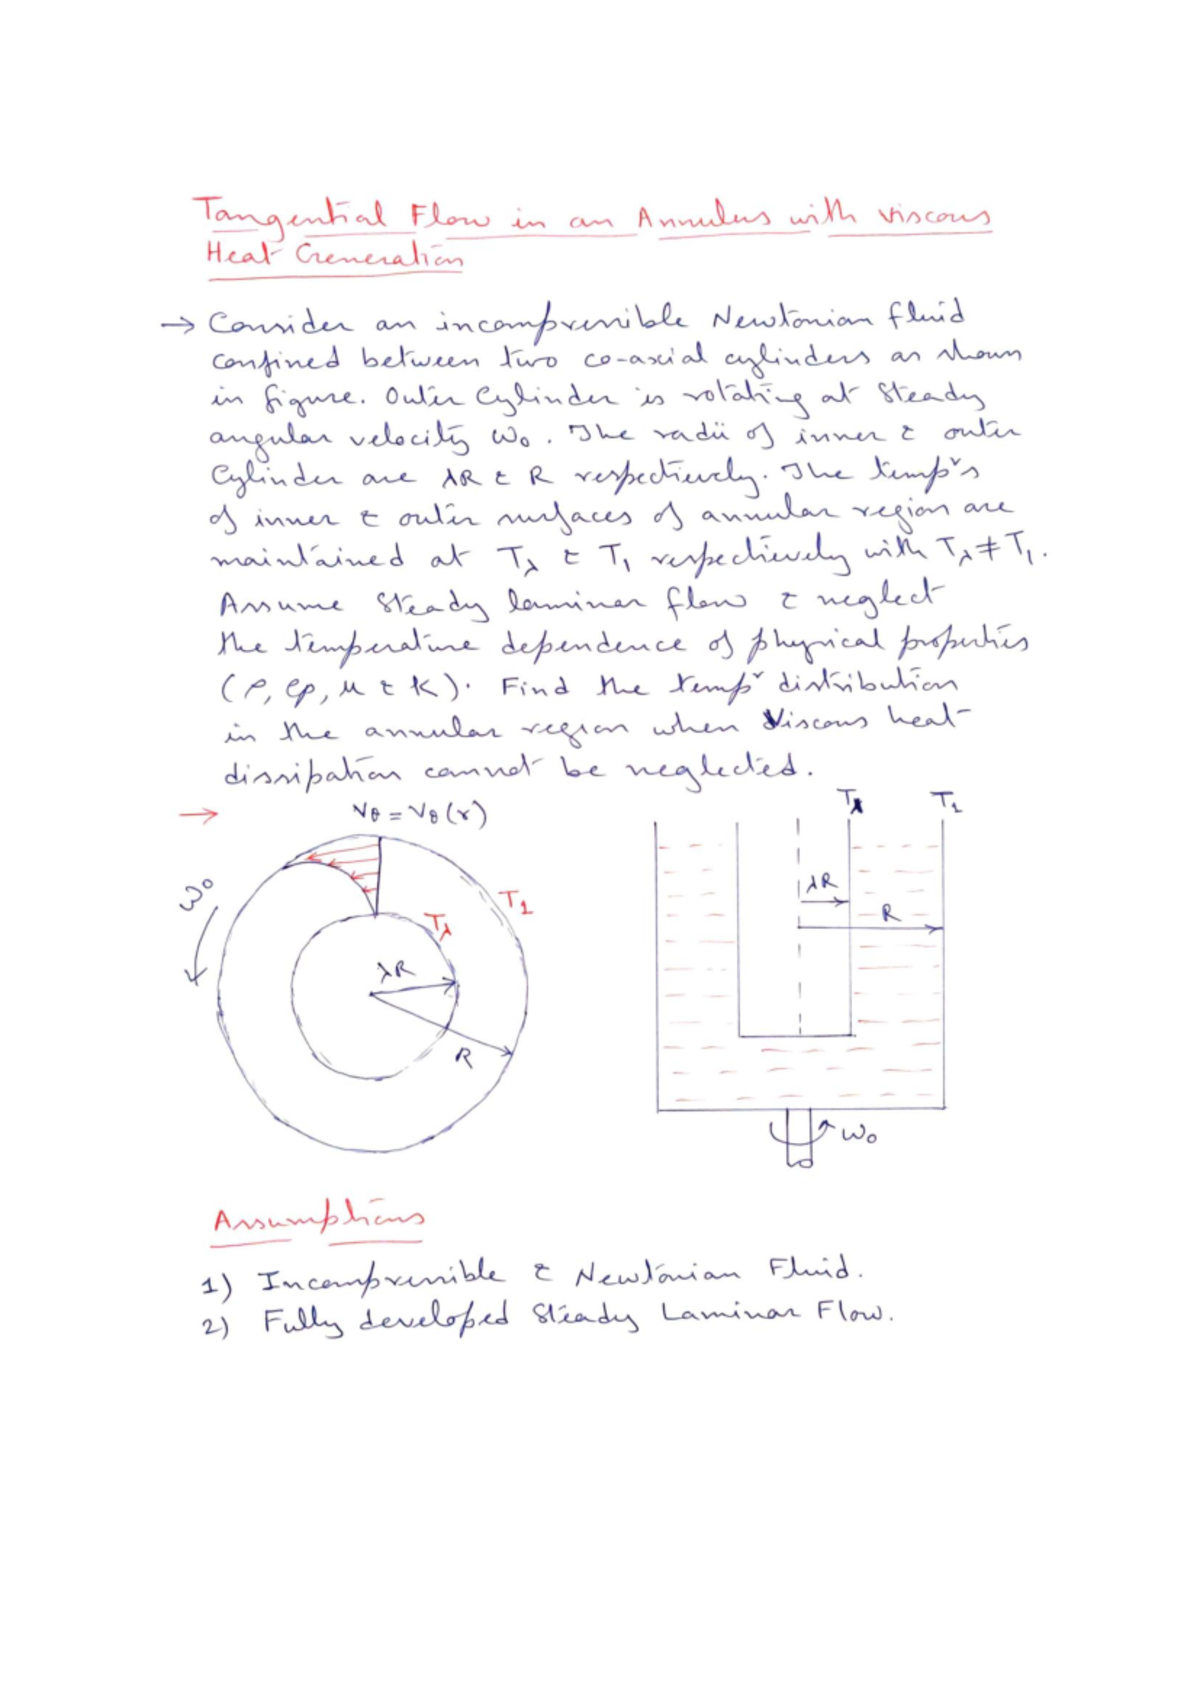 Tangential Flow in an Annulus with viscous
Heat Generation
→ Consider an incompressible Newtonian fluid
confined between two co-axial cylinders as shown
in figure. Outer Cylinder is rotating at Steady
angular velocity ω₀. The radii of inner & outer
Cylinder are λR & R respectively. The tempʳs
of inner & outer surfaces of annular region are
maintained at Tλ & T₁ respectively with Tλ ≠ T₁.
Assume Steady laminar flow & neglect
the temperature dependence of physical properties
(ρ, Cp, μ & K). Find the tempʳ distribution
in the annular region when Viscous heat
dissipation cannot be neglected.
→ Vθ = Vθ(r)
Tλ T₁
ω₀
T₁
Tλ
λR
R
λR
R
ω₀
Assumptions
1) Incompressible & Newtonian Fluid.
2) Fully developed Steady Laminar Flow.